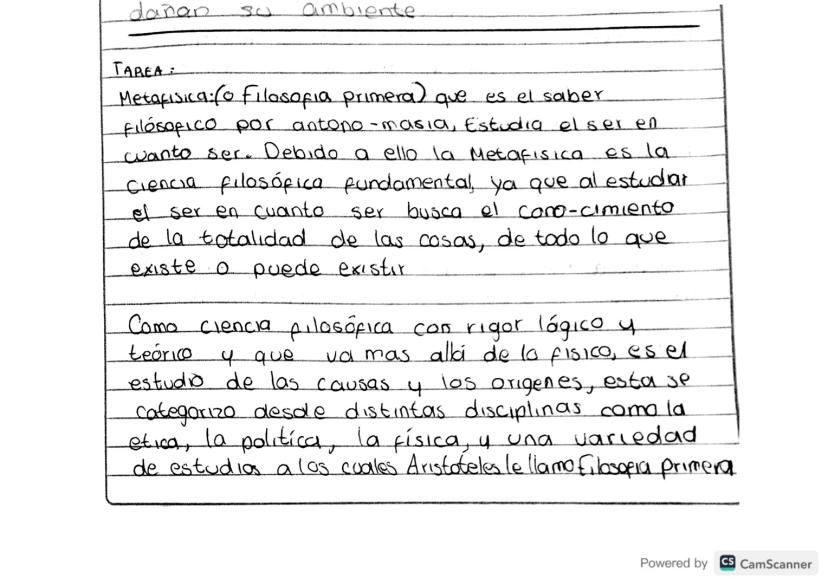 dañan su ambiente
TAREA:
Metafisica:(o Filosofia primera) que es el saber
filósofico por antono-masia, Estudia el ser en
cuanto ser. Debido a ello la Metafisica es la
ciencia filosófica fundamental, ya que al estudiar
el ser en cuanto ser busca el cono-cimiento
de la totalidad de las cosas, de todo lo que
existe o puede existir
Como ciencia filosófica con rigor lógico y
teórico y que va mas allá de lo fisico, es el
estudio de las causas y los origenes, esta se
categorizo desde distintas disciplinas como la
etica, la política, la física, y una variedad
de estudios a los cuales Aristoteles le llamo filosofia primera
Powered by CS CamScanner